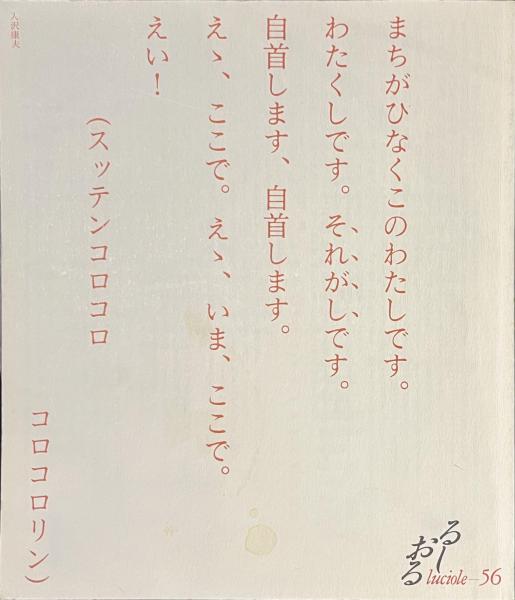 まちがひなくこのわたしです。
わたくしです。それがしです。
自首します、自首します。
えゝ、ここで。えゝ、いま、ここで。
えい！
（スッテンコロコロ
コロコロリン）
入沢康夫
るしおる
luciole—56